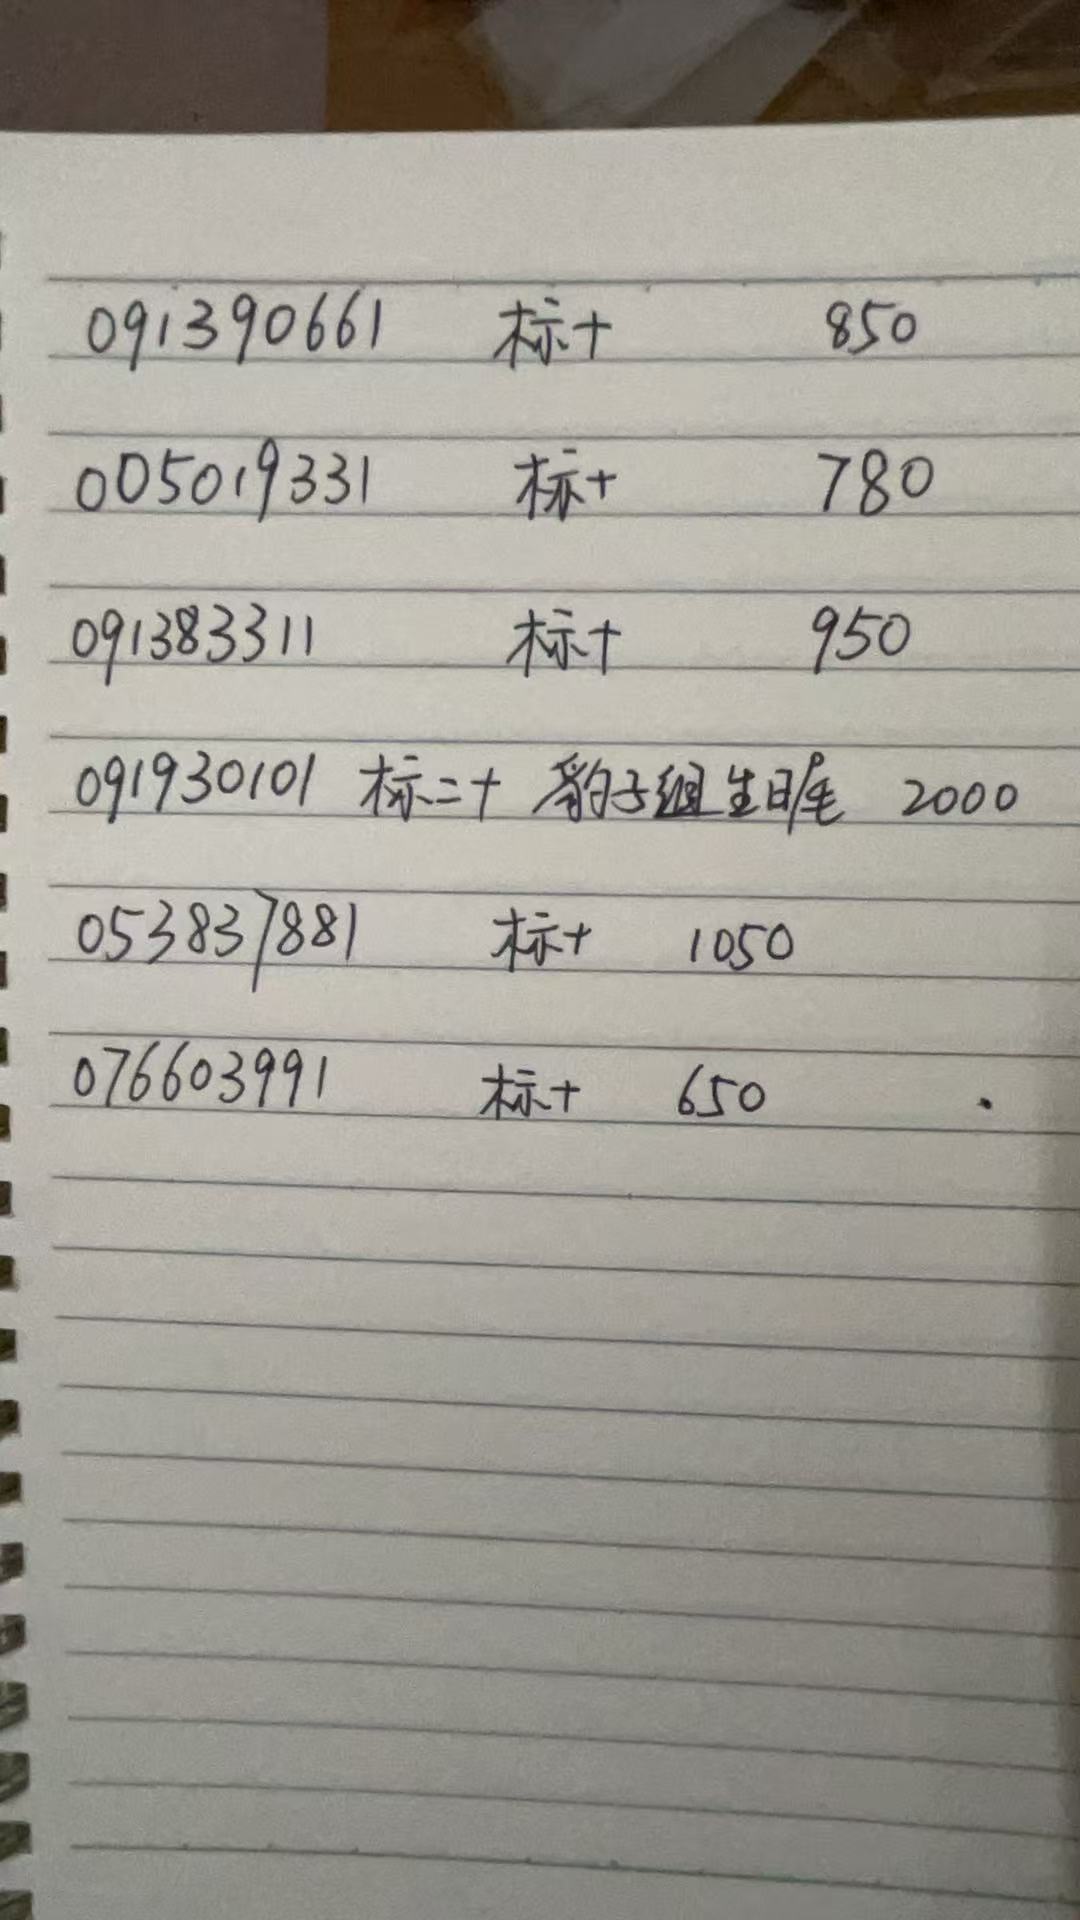 091390661 标十 850
005019331 标十 780
091383311 标十 950
091930101 标二十 豹子组生日尾 2000
053837881 标十 1050
076603991 标十 650